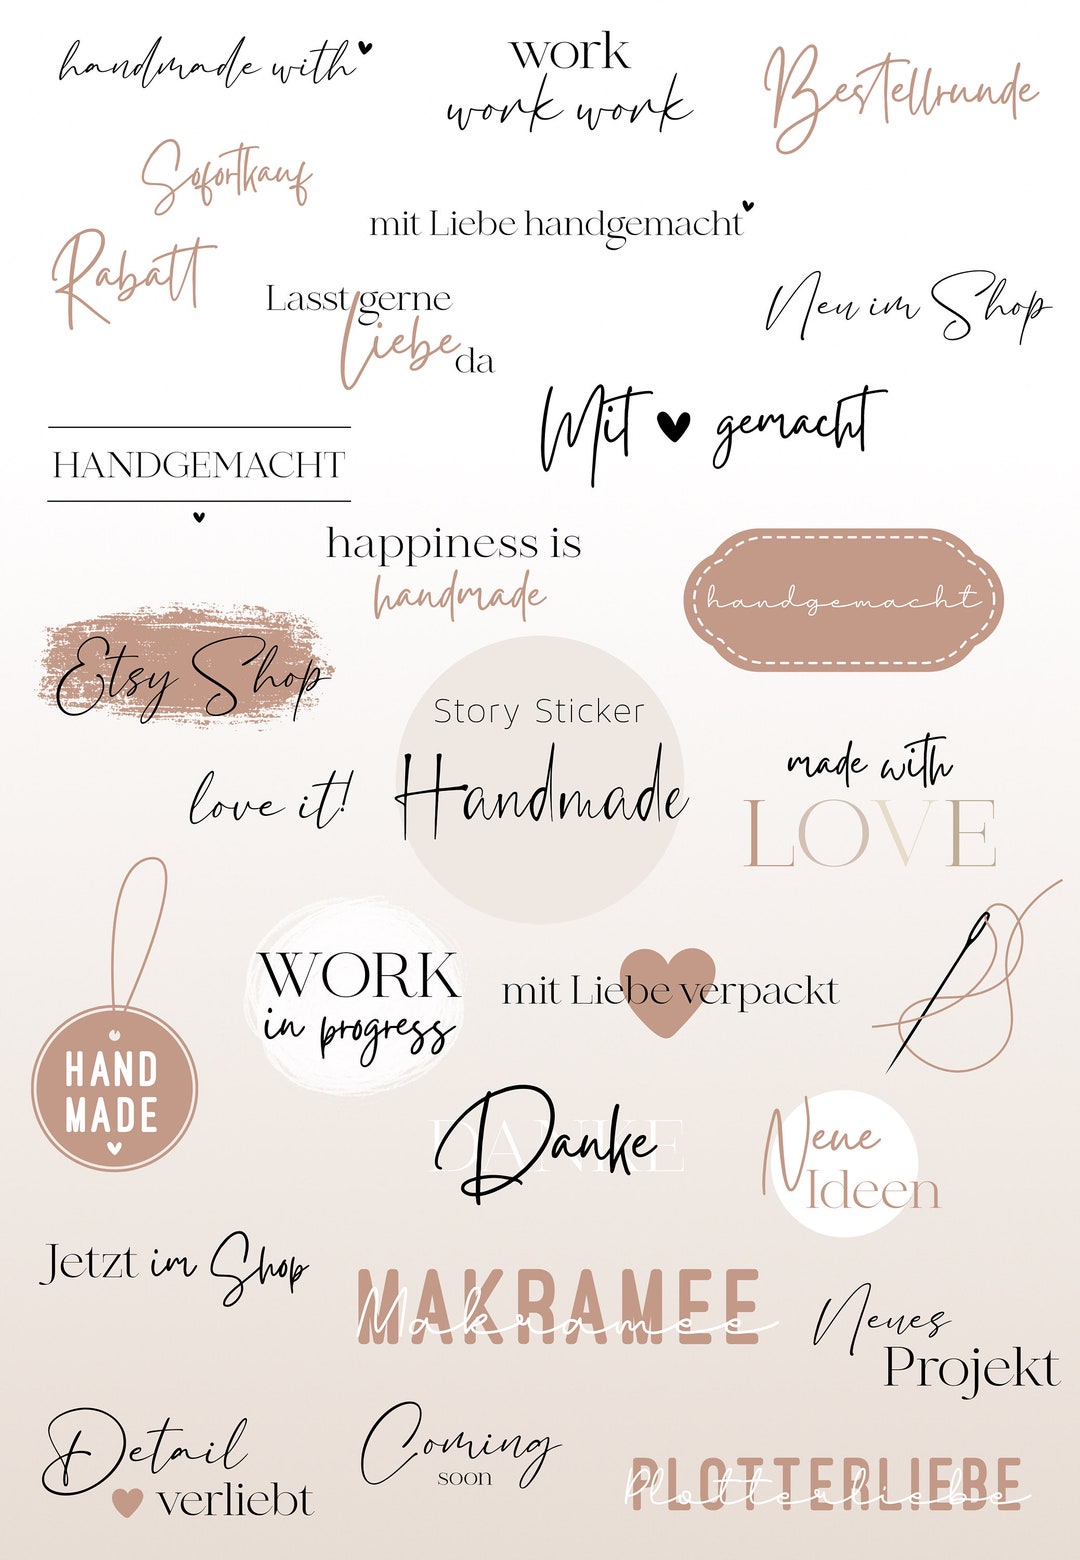 handmade with
work
work work
Bestellrunde
Sofortkauf
mit Liebe handgemacht
Rabatt
Lasst gerne
Liebe da
Neu im Shop
Mit gemacht
HANDGEMACHT
happiness is
handmade
handgemacht
Etsy Shop
Story Sticker
Handmade
love it!
made with
LOVE
WORK
in progress
mit Liebe verpackt
HAND
MADE
DANKE
Danke
Neue
Ideen
Jetzt im Shop
MAKRAMEE
Makramee
Neues
Projekt
Detail
verliebt
Coming
soon
PLOTTERLIEBE
Plotterliebe